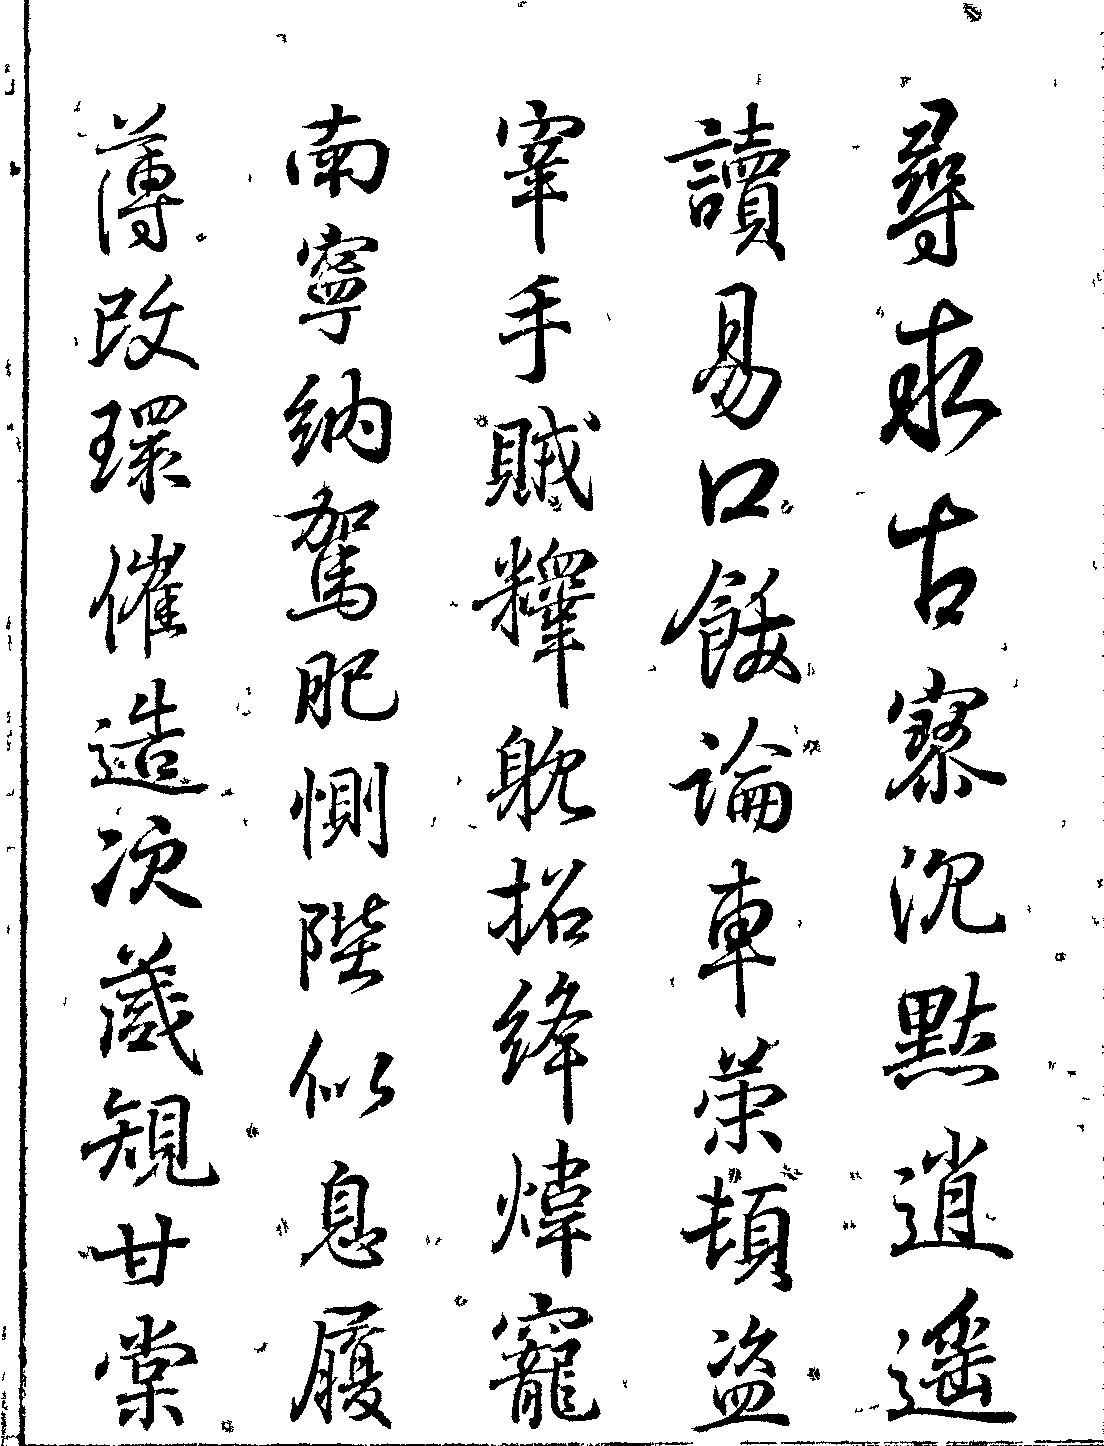 尋求古寥沉默逍遥
讀易口餒論車榮頓盜
宰手賊釋躭招絳煒寵
南寧納駕肥惻陛似息履
薄改環催造次葴規甘棠